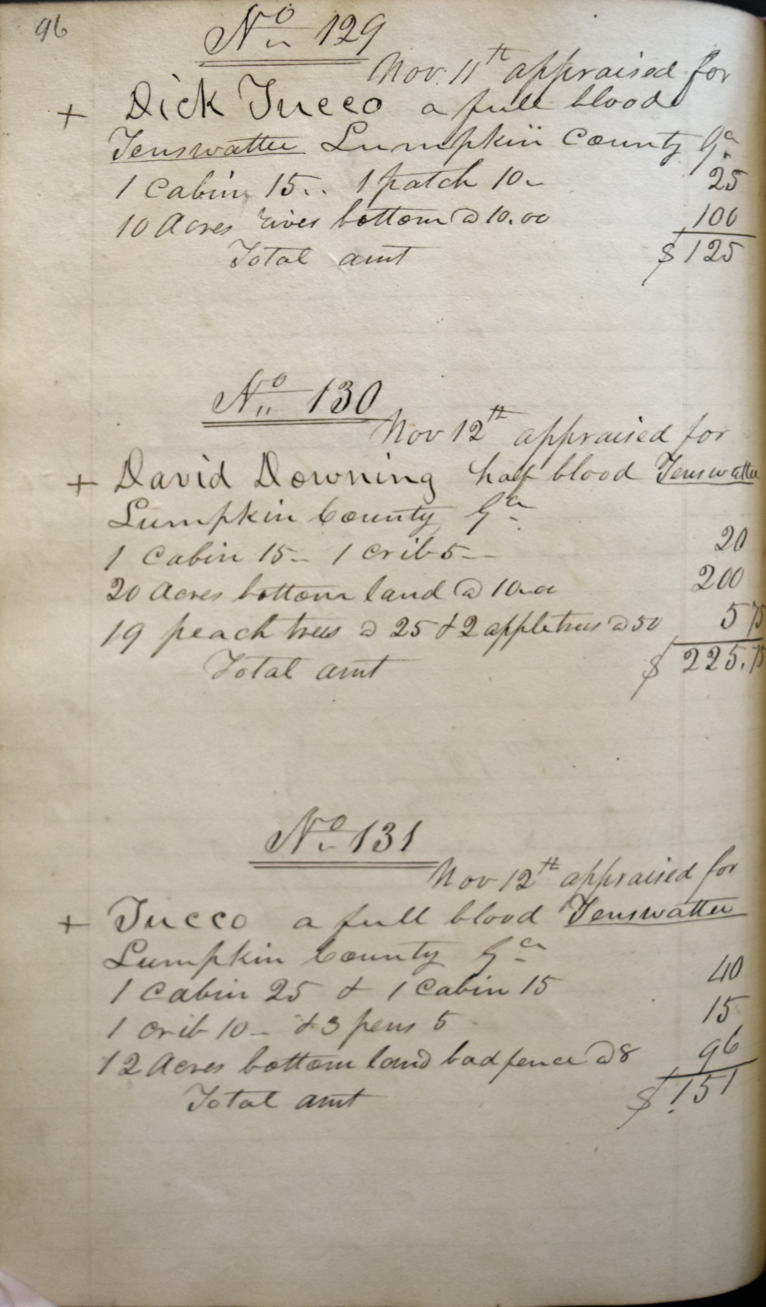 96
No 129
Nov. 11th appraised for
+ Dick Tucco a full blood
Tenswattee Lumpkin County Ga
1 Cabin 15.. 1 patch 10- 25
10 Acres river bottom @ 10.00 100
Total amt $125
No 130
Nov 12th appraised for
+ David Downing half blood Tenswattee
Lumpkin County Ga
1 Cabin 15- 1 crib 5- 20
20 Acres bottom land @ 10.00 200
19 peach trees @ 25 & 2 apple trees @ 50 5 75
Total amt $225.75
No 131
Nov 12th appraised for
+ Tucco a full blood Tenswattee
Lumpkin County Ga
1 Cabin 25 & 1 Cabin 15 40
1 crib 10- & 3 pens 5 15
12 Acres bottom land bad fence @ 8 96
Total amt $151